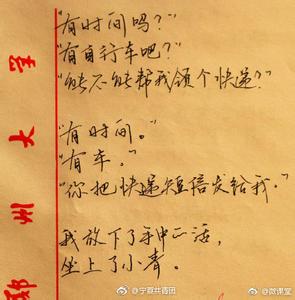 "有时间吗？"
"有自行车吧？"
"能不能帮我领个快递？"
"有时间。"
"有车。"
"你把快递短信发给我。"
我放下了手中的活，
坐上了小青。
郑州大学
@宁夏共青团
@微课堂